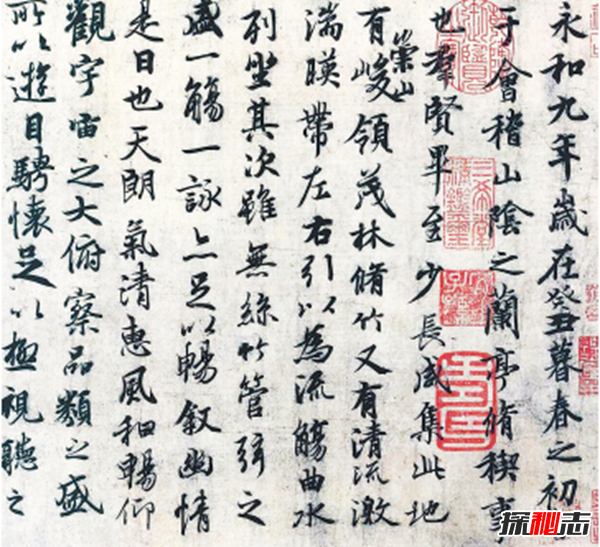 永和九年歲在癸丑暮春之初會
于會稽山陰之蘭亭脩稧事
也羣賢畢至少長咸集此地
有崇山峻領茂林脩竹又有清流激
湍暎帶左右引以為流觴曲水
列坐其次雖無絲竹管弦之
盛一觴一詠亦足以暢敘幽情
是日也天朗氣清惠風和暢仰
觀宇宙之大俯察品類之盛
所以遊目騁懷足以極視聽之
三希堂精鑑璽
宜子孫
探秘志